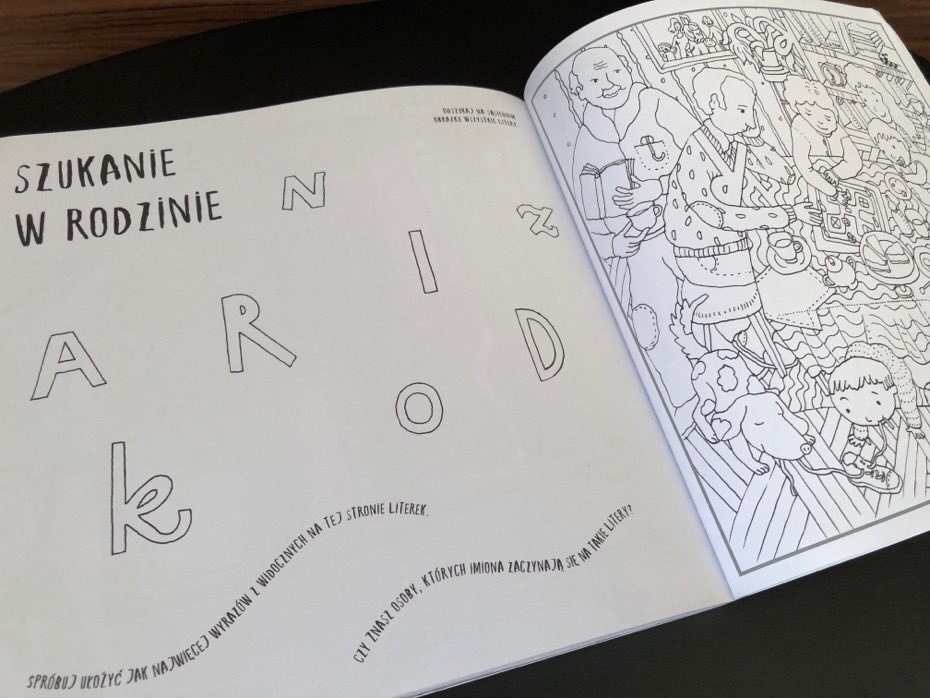 ODSZUKAJ NA SĄSIEDNIM
OBRAZKU WSZYSTKIE LITERY.
SZUKANiE
W RODZiNiE
N
Z
I
A
R
D
O
k
SPRÓBUJ UŁOŻYĆ JAK NAJWIĘCEJ WYRAZÓW Z WIDOCZNYCH NA TEJ STRONIE LITEREK.
CZY ZNASZ OSOBY, KTÓRYCH IMIONA ZACZYNAJĄ SIĘ NA TAKIE LITERY?
t